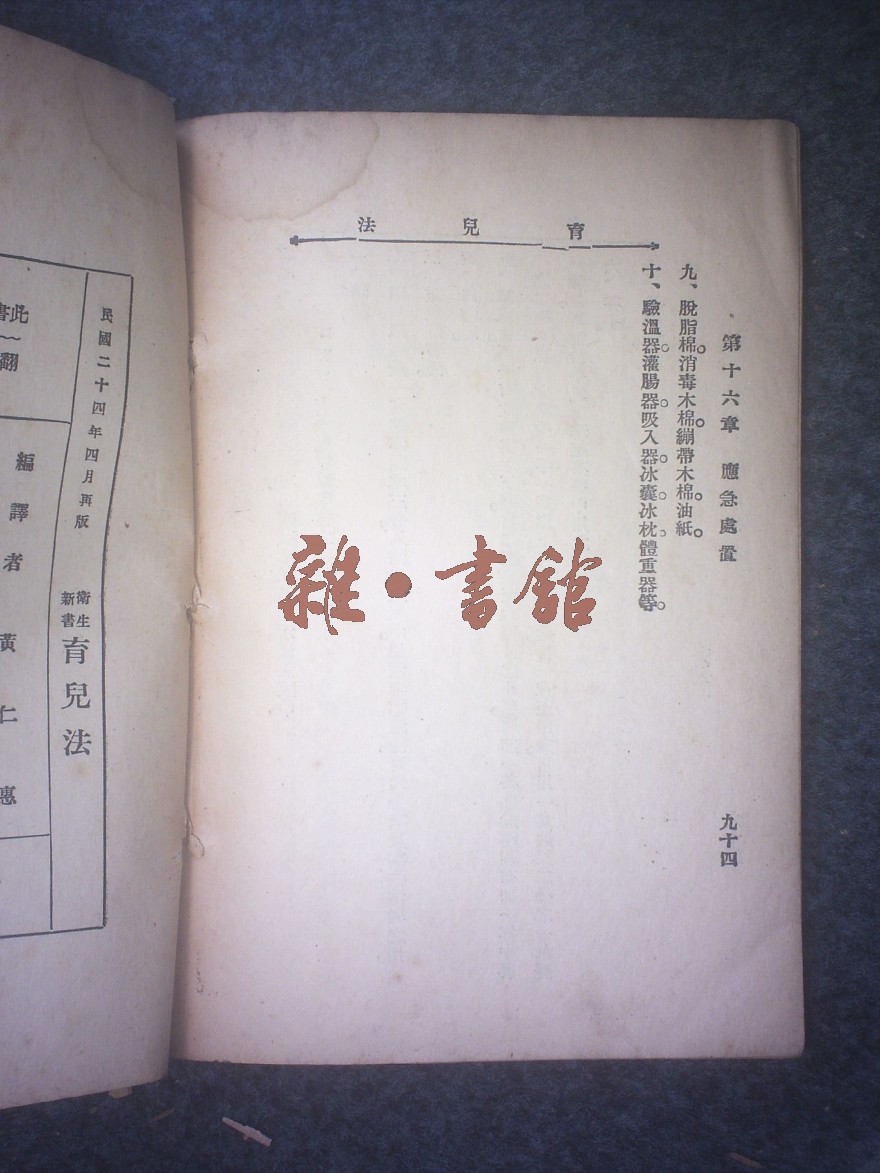 育兒法
第十六章 應急處置
九、脫脂棉。消毒木棉。繃帶木棉。油紙。
十、驗溫器。灌腸器。吸入器。冰囊冰枕。體重器等。
九十四
雜・書館
民國二十四年四月再版
衛生新書 育兒法
編譯者 黃仁惠
此書
翻